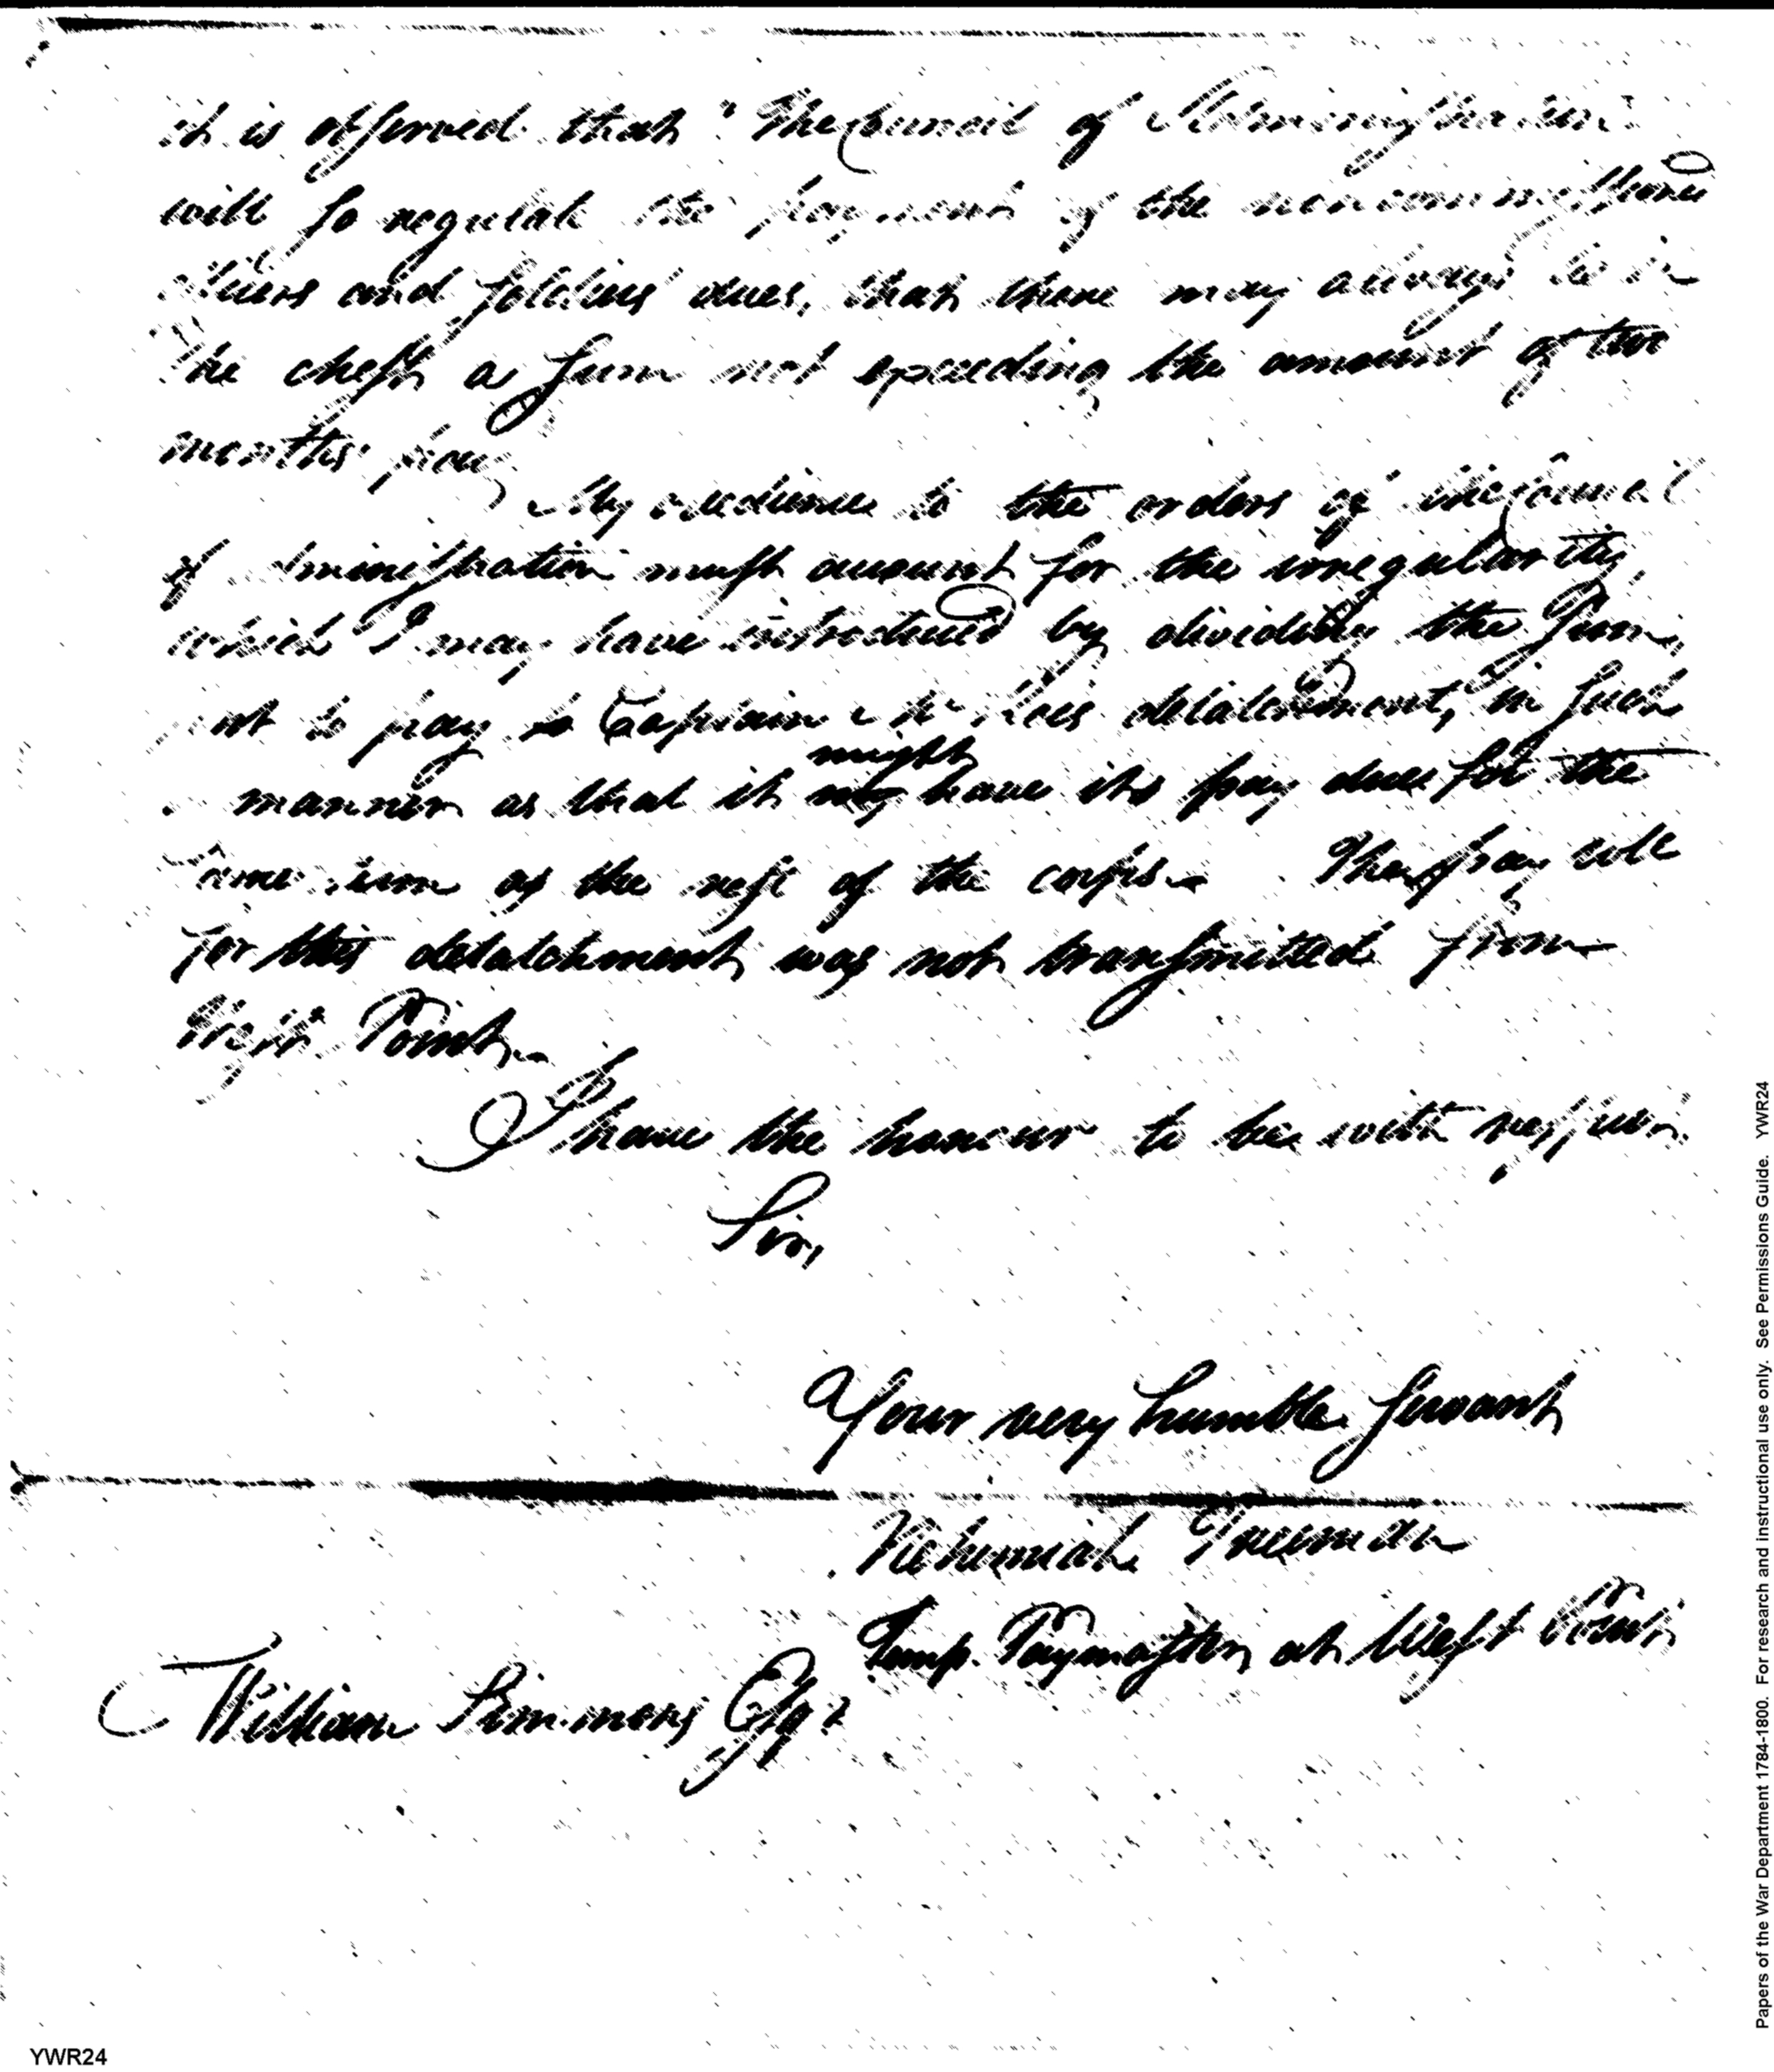 it is observed that "The Council of Administration
will so regulate the payment of the noncommissioned
officers and soldiers dues, that there may always be in
the chest a sum not exceeding the amount of two
months pay
My obedience to the orders of the council
of administration must account for the irregularity,
which I may have introduced by dividing the sum
sent to pay Captain detatchment, in such
manner as that it might have its pay due for the
same time as the rest of the corps. The pay roll
for this detatchment was not transmitted from
West Point.
I have the honour to be with respect
Sir,
Your very humble servant
Nehemiah Freeman
Temp. Paymaster at West Point
William Simmons Esqr
Papers of the War Department 1784-1800. For research and instructional use only. See Permissions Guide. YWR24
YWR24